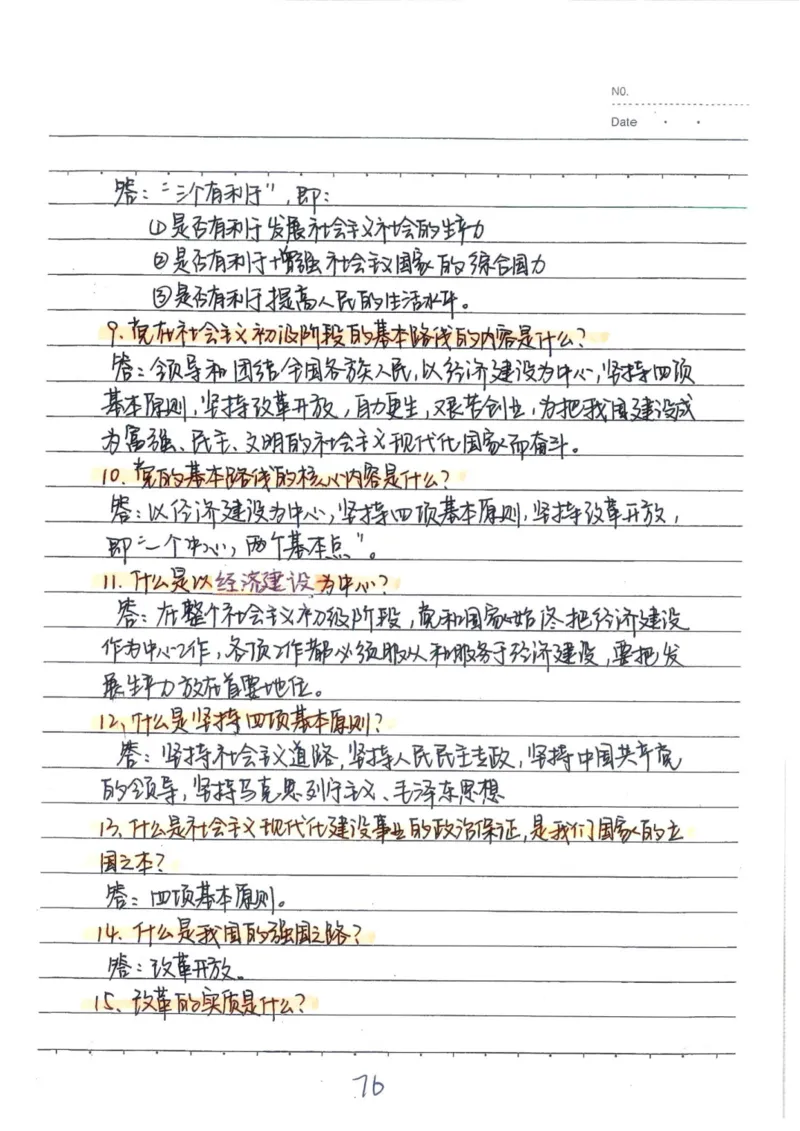 NO.
Date
答：“三个有利于”，即：
①是否有利于发展社会主义社会的生产力
②是否有利于增强社会主义国家的综合国力
③是否有利于提高人民的生活水平。
9.党在社会主义初级阶段的基本路线的内容是什么？
答：领导和团结全国各族人民，以经济建设为中心，坚持四项
基本原则，坚持改革开放，自力更生，艰苦创业，为把我国建设成
为富强、民主、文明的社会主义现代化国家而奋斗。
10.党的基本路线的核心内容是什么？
答：以经济建设为中心，坚持四项基本原则，坚持改革开放，
即“一个中心，两个基本点”。
11.什么是以经济建设为中心？
答：在整个社会主义初级阶段，党和国家始终把经济建设
作为中心工作，各项工作都必须服从和服务于经济建设，要把发
展生产力放在首要地位。
12、什么是坚持四项基本原则？
答：坚持社会主义道路，坚持人民民主专政，坚持中国共产党
的领导，坚持马克思列宁主义、毛泽东思想
13、什么是社会主义现代化建设事业的政治保证，是我们国家的立
国之本？
答：四项基本原则。
14.什么是我国的强国之路？
答：改革开放。
15、改革的实质是什么？
76